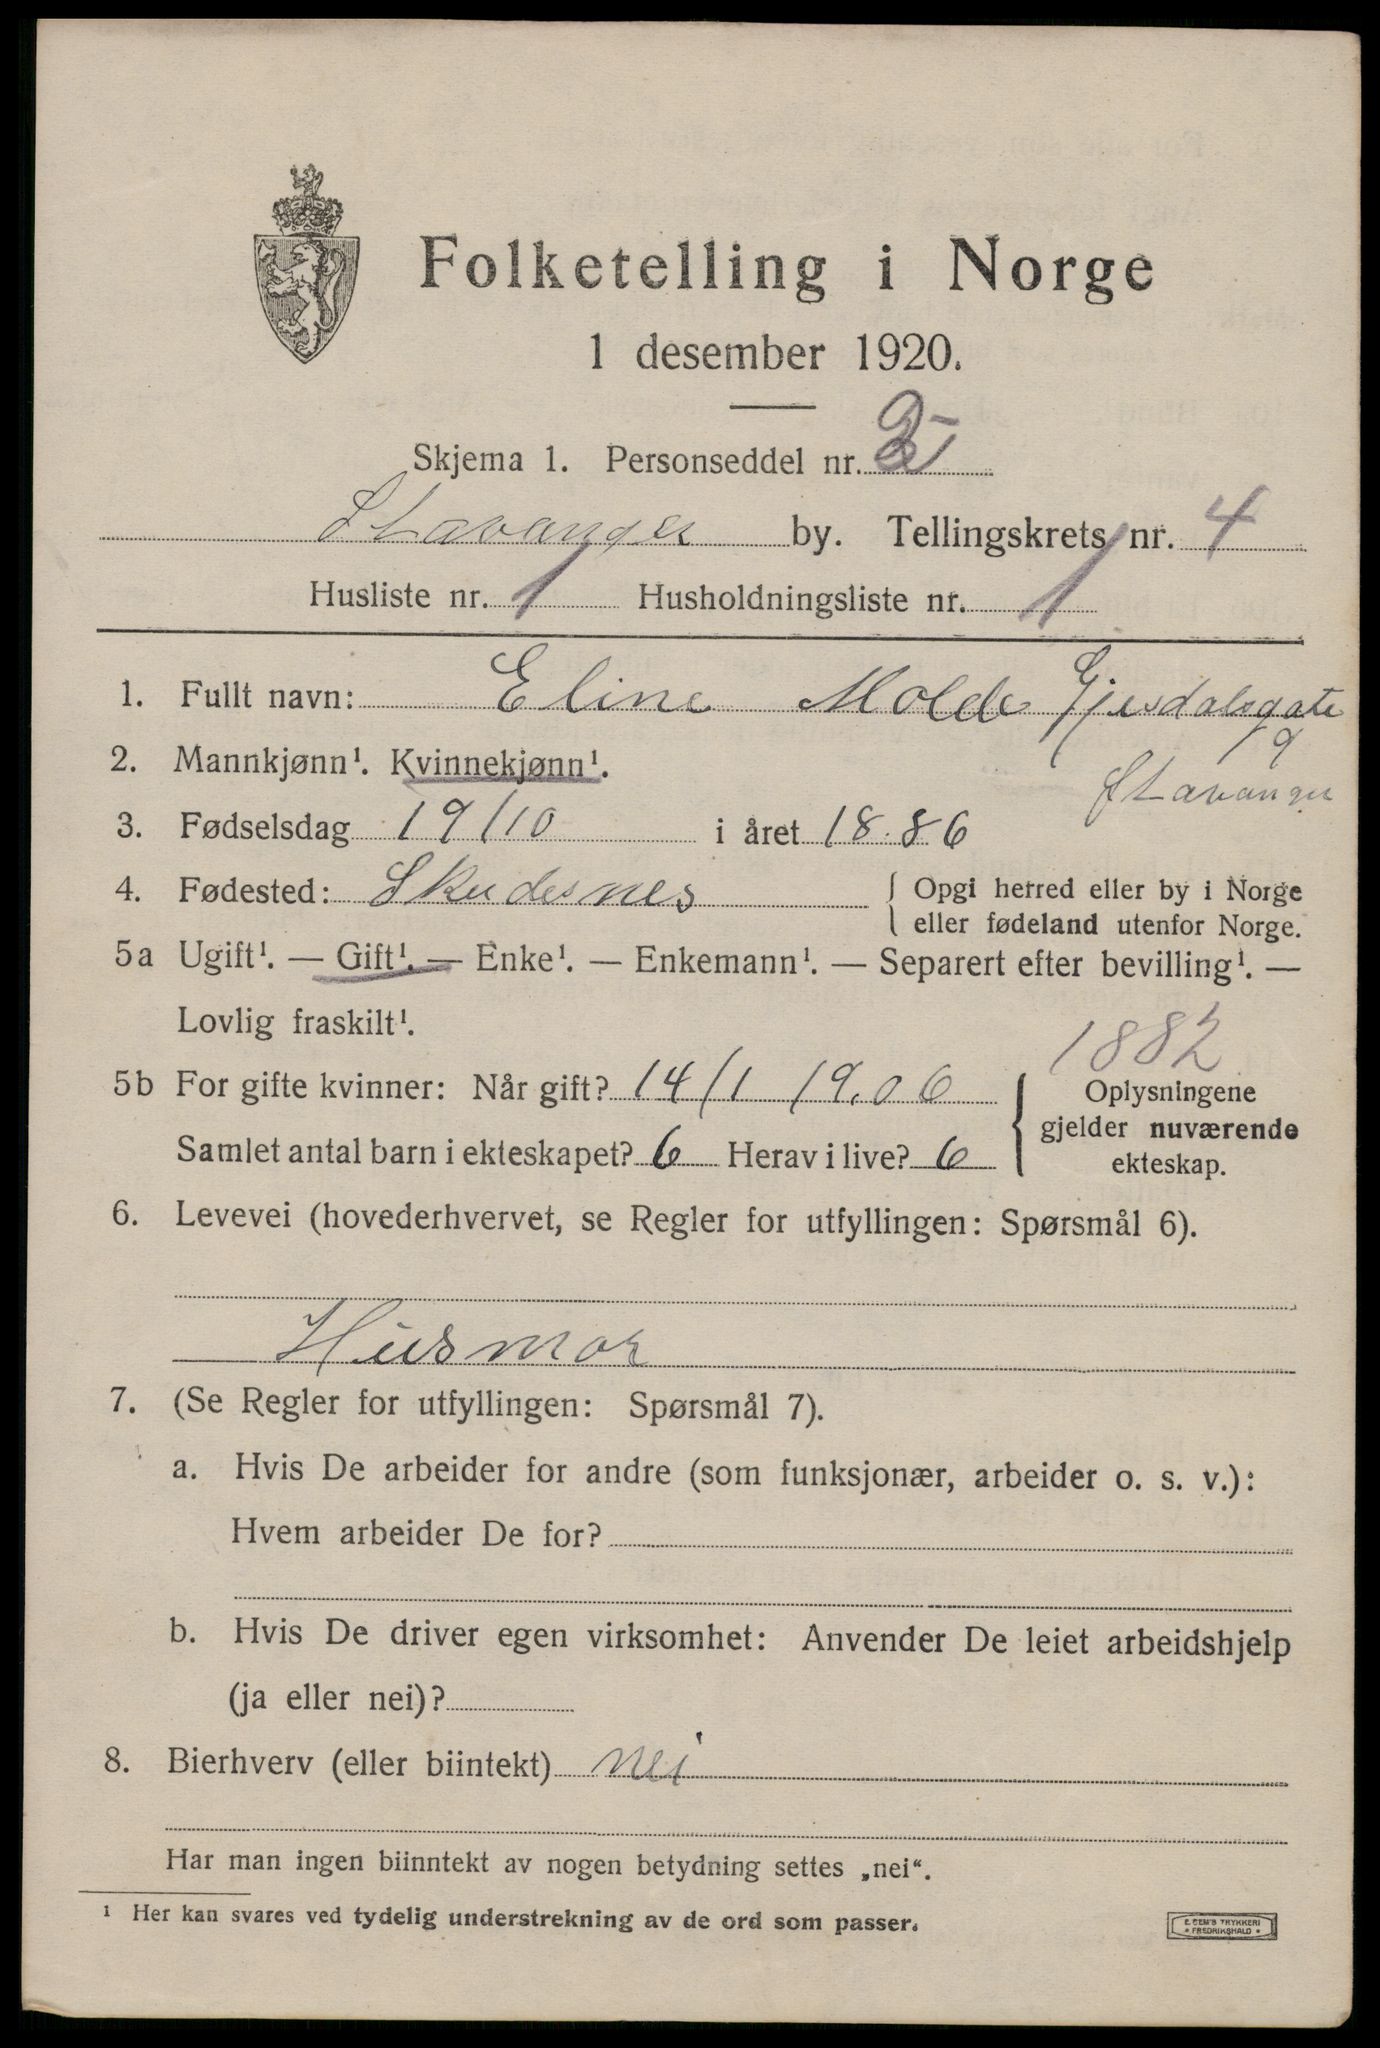 Folketelling i Norge
1 desember 1920.
Skjema 1. Personseddel nr. 2
Stavanger by. Tellingskrets nr. 4
Husliste nr. 1 Husholdningsliste nr. 1
1. Fullt navn: Eline Molde Gjesdalsgate
9
2. Mannkjønn¹. Kvinnekjønn¹.
Stavanger
3. Fødselsdag 19/10 i året 1886
4. Fødested: Skudesnes { Opgi herred eller by i Norge
eller fødeland utenfor Norge.
5a Ugift¹. — Gift¹. — Enke¹. — Enkemann¹. — Separert efter bevilling¹. —
Lovlig fraskilt¹.
1882
5b For gifte kvinner: Når gift? 14/1 19.06 { Oplysningene
gjelder nuværende
Samlet antal barn i ekteskapet? 6 Herav i live? 6 ekteskap.
6. Levevei (hovederhvervet, se Regler for utfyllingen: Spørsmål 6).
Husmor
7. (Se Regler for utfyllingen: Spørsmål 7).
a. Hvis De arbeider for andre (som funksjonær, arbeider o. s. v.):
Hvem arbeider De for?
b. Hvis De driver egen virksomhet: Anvender De leiet arbeidshjelp
(ja eller nei)?
8. Bierhverv (eller biintekt) nei
Har man ingen biinntekt av nogen betydning settes „nei“.
¹ Her kan svares ved tydelig understrekning av de ord som passer.
E. SEM'S TRYKKERI
* FREDRIKSHALD *